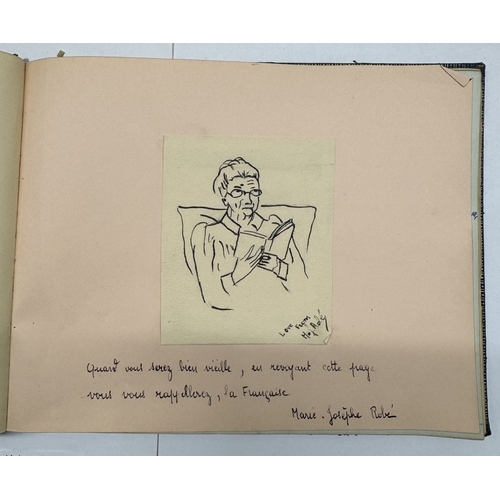 Love from
M.J. Robé
Quand vous serez bien vieille, en revoyant cette page
vous vous rappellerez, la Française
Marie-Josèphe Robé